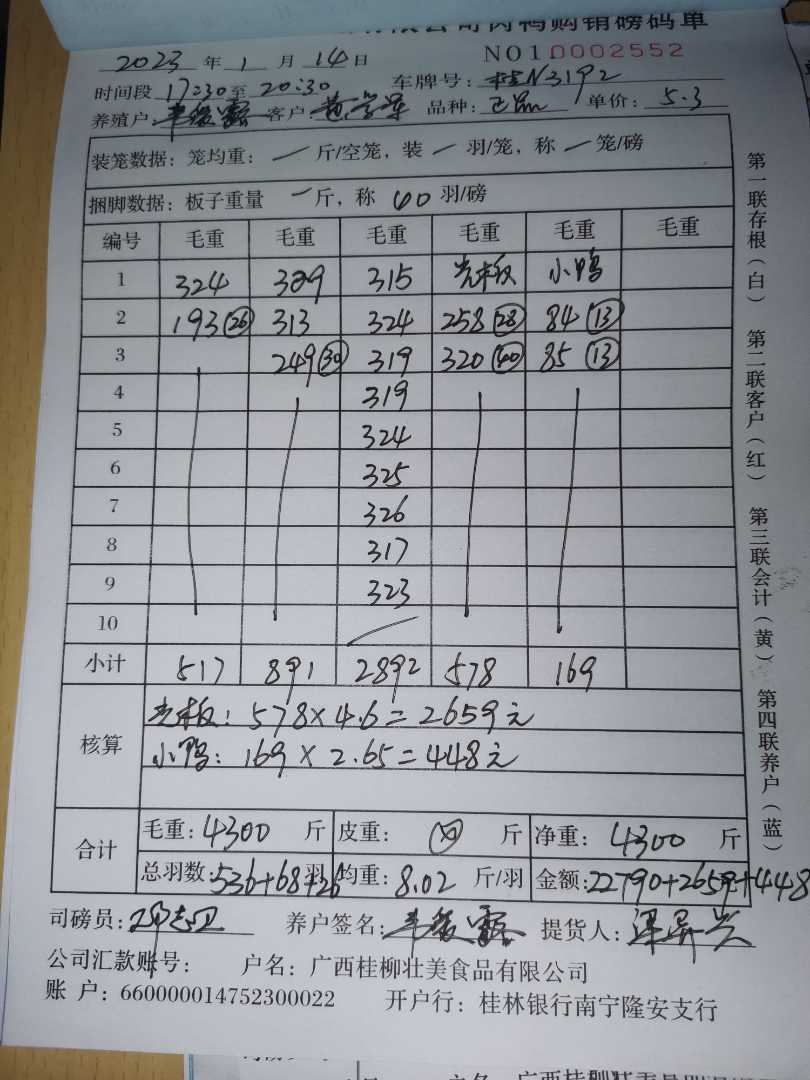 有限公司肉鸭购销磅码单
2023 年 1 月 14 日 NO10002552
时间段 17:30 至 20:30 车牌号: 桂N3192
养殖户: 客户: 品种: 单价: 5.3
装笼数据: 笼均重: 一 斤/空笼, 装 一 羽/笼, 称 一 笼/磅
捆脚数据: 板子重量 一 斤, 称 40 羽/磅
编号 毛重 毛重 毛重 毛重 毛重 毛重
1 324 329 315 光板 小鸭
2 193 (26) 313 324 258 (28) 84 (13)
3 249 (30) 319 320 (40) 85 (13)
4 319
5 324
6 325
7 326
8 317
9 323
10
小计 517 891 2892 578 169
核算 光板: 578×4.6=2659元
小鸭: 169×2.65=448元
合计 毛重: 4300 斤 皮重: 斤 净重: 4300 斤
总羽数: 536+68+26 羽 均重: 8.02 斤/羽 金额: 22790+2659+448
司磅员: 养户签名: 提货人:
公司汇款账号: 户名: 广西桂柳壮美食品有限公司
账 户: 660000014752300022 开户行: 桂林银行南宁隆安支行
第一联存根(白)
第二联客户(红)
第三联会计(黄)
第四联养户(蓝)